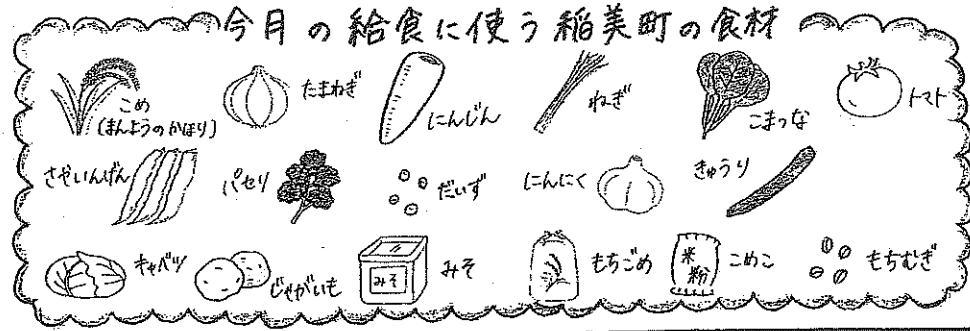 今月の給食に使う稲美町の食材
こめ
(まんようのかほり)
たまねぎ
にんじん
ねぎ
こまつな
トマト
さやいんげん
パセリ
だいず
にんにく
きゅうり
キャベツ
じゃがいも
みそ
みそ
もちごめ
米
粉
こめこ
もちむぎ